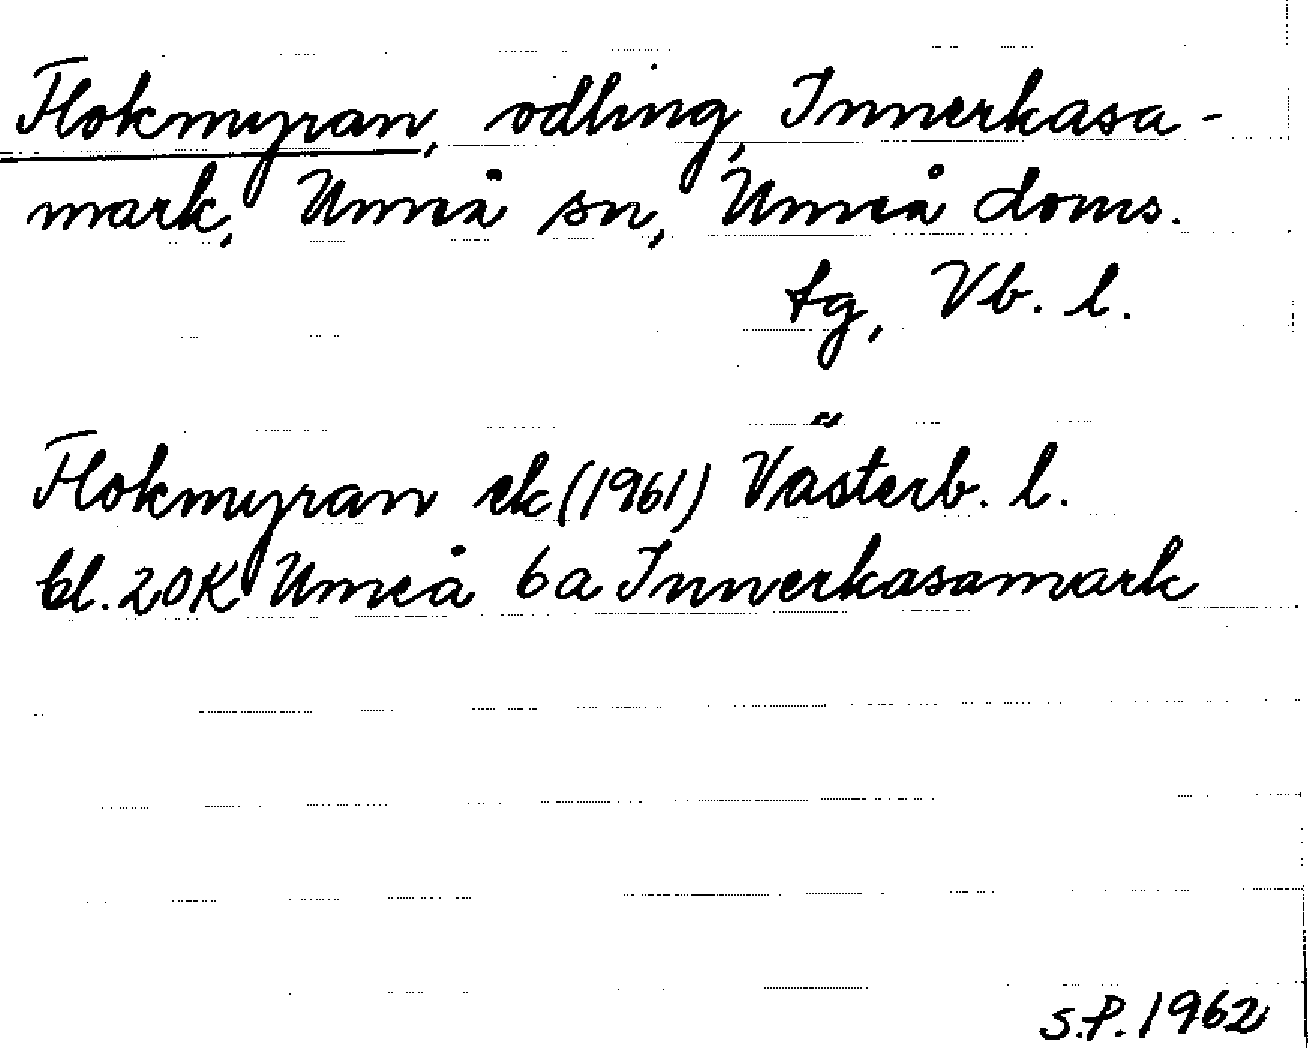 Flokmyran, odling, Innerkasa-
mark, Umeå sn, Umeå doms.
tg, Vb. l.
Flokmyran ek (1961) Västerb. l.
bl. 20K Umeå 6a Innerkasamark
S.P. 1962